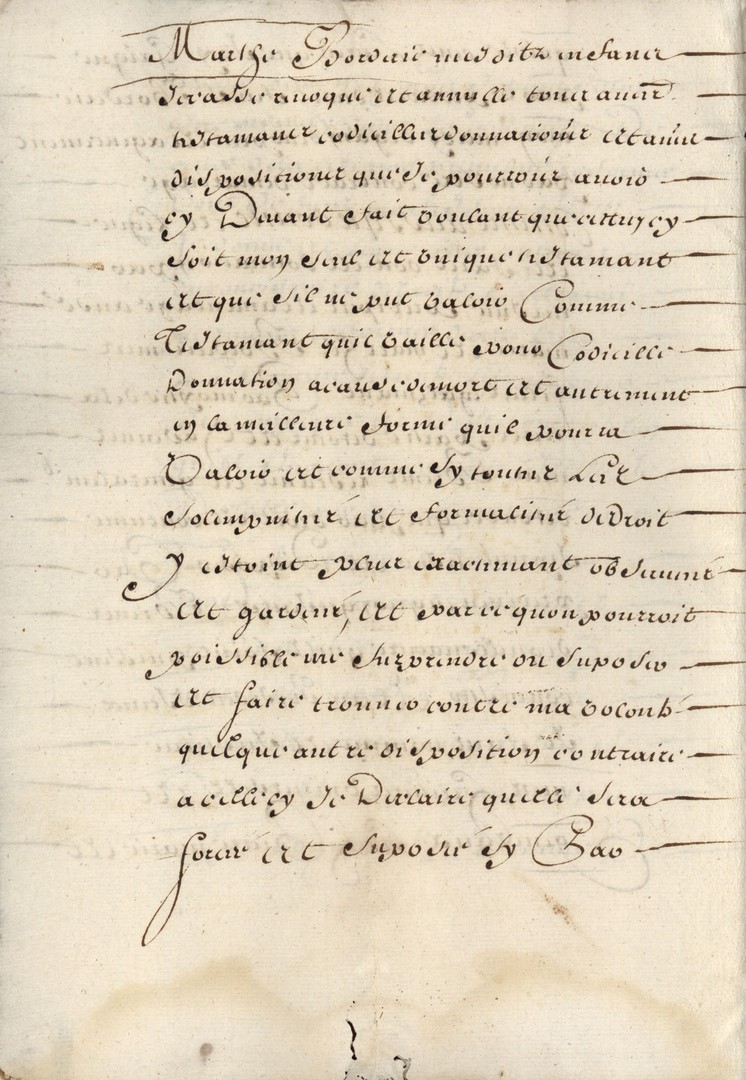 Marthe Borderie mesdits enfans
Je casse revoque et annulle tous autres
testamans codicilles donnations et autres
dispositions que Je pourrois avoir
cy Devant fait voulant que cettuy cy
soit mon seul et unique testamant
et que sil ne put valoir Comme
Testamant quil vaille pour Codicille
Donnation a cause de mort et autrement
en la meilleure forme quil pourra
Valoir et comme sy toutes Les
solempnites et formalites de Droit
y estoint plus exactemant observées
et gardées, et par ce quon pourroit
poissible me surprendre ou suposer
et faire trouver contre ma volonté
quelque autre disposition contraire
a celle cy Je Declaire quelle sera
forcée et suposée sy Par